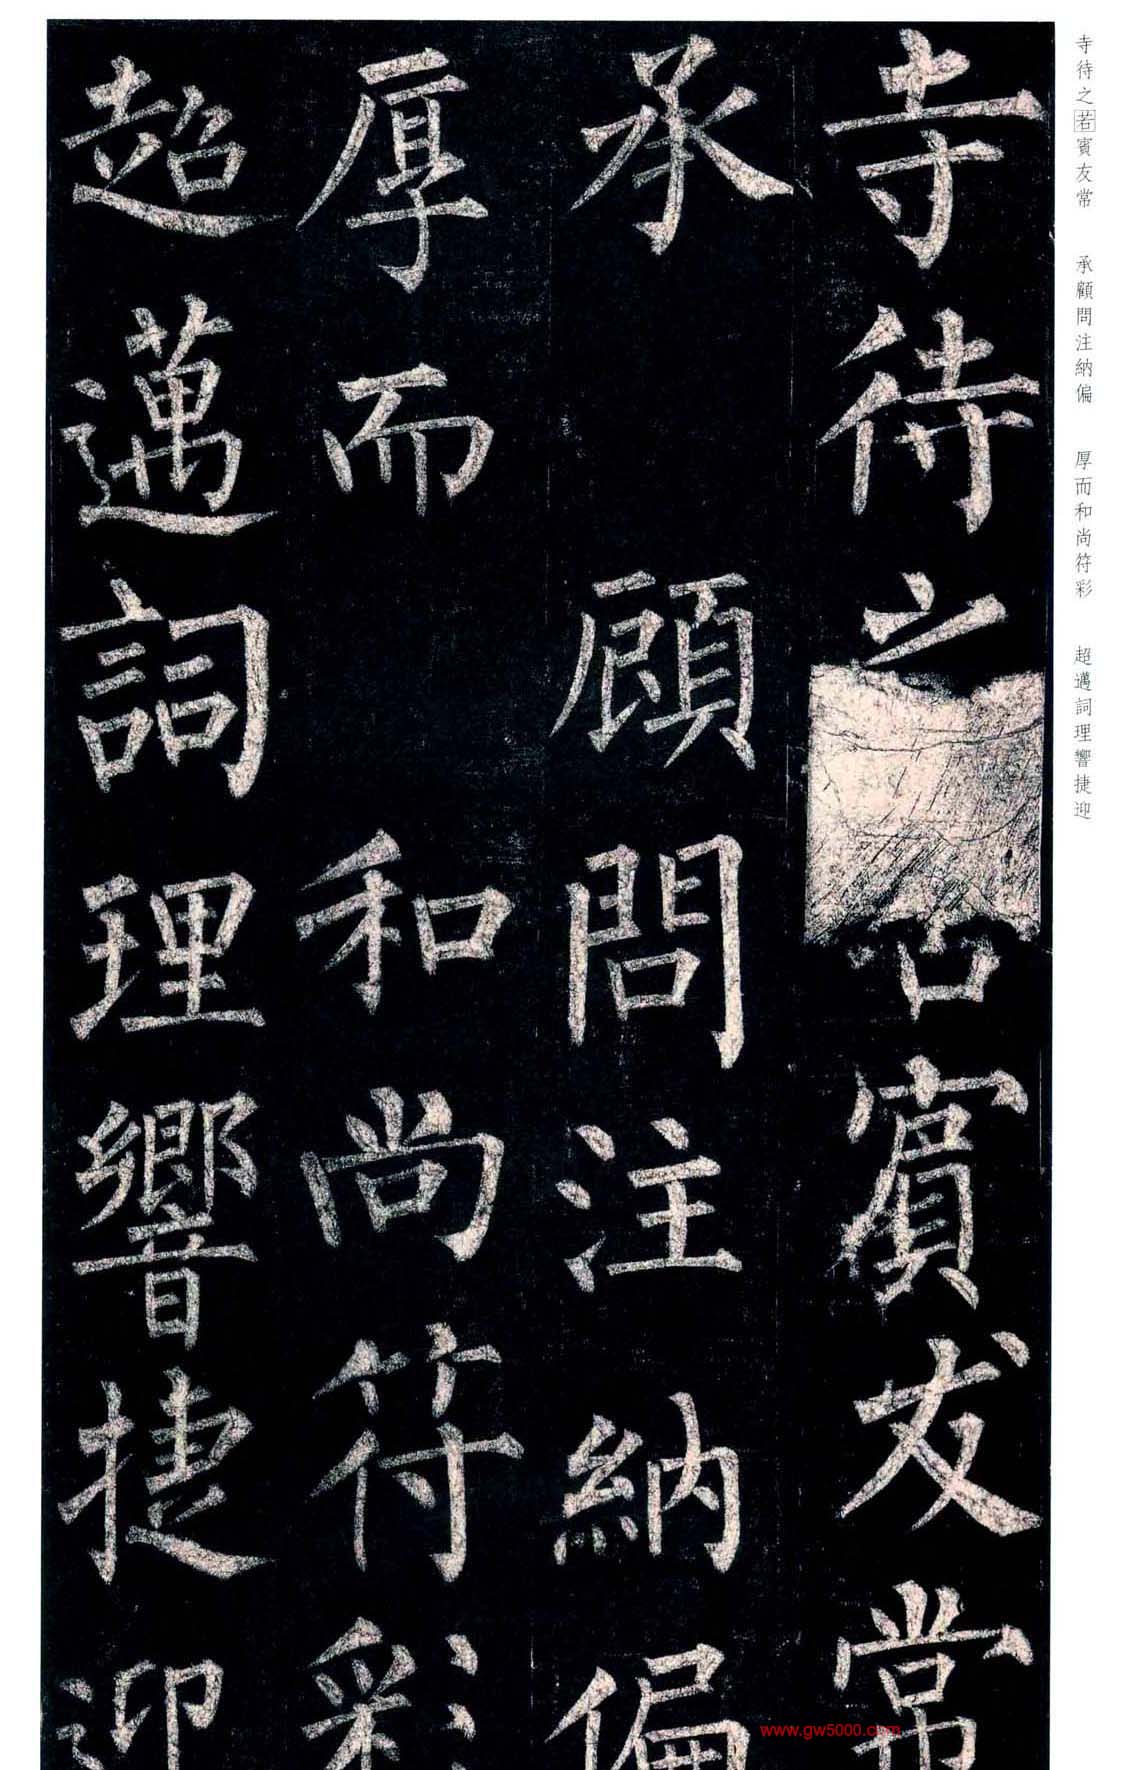 寺待之若賓友常
承顧問注納偏
厚而和尚符彩
超邁詞理響捷迎
寺待之若賓友常 承顧問注納偏 厚而和尚符彩 超邁詞理響捷迎
www.gw5000.com